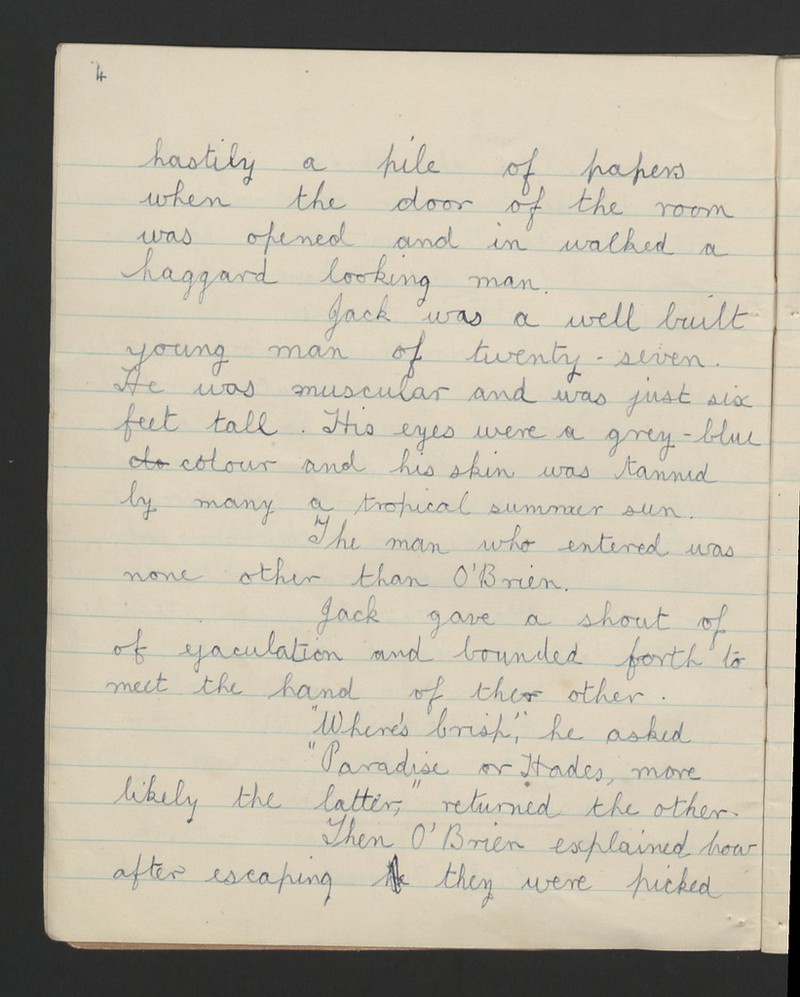 4
hastily a pile of papers
when the door of the room
was opened and in walked a
haggard looking man.
Jack was a well built
young man of twenty-seven.
He was muscular and was just six
feet tall. His eyes were a grey-blue
clo colour and his skin was tanned
by many a tropical summer sun.
The man who entered was
none other than O'Brien.
Jack gave a shout of
of ejaculation and bounded forth to
meet the hand of the other.
"Where's Crisp", he asked
"Paradise or Hades, more
likely the latter," returned the other.
Then O'Brien explained how
after escaping they were picked